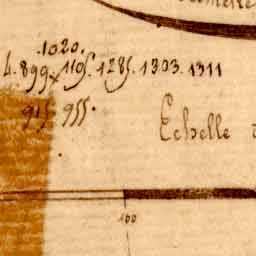 .1020.
4. 899. 1105. 1285. 1303. 1311
915. 955.
Echelle
100